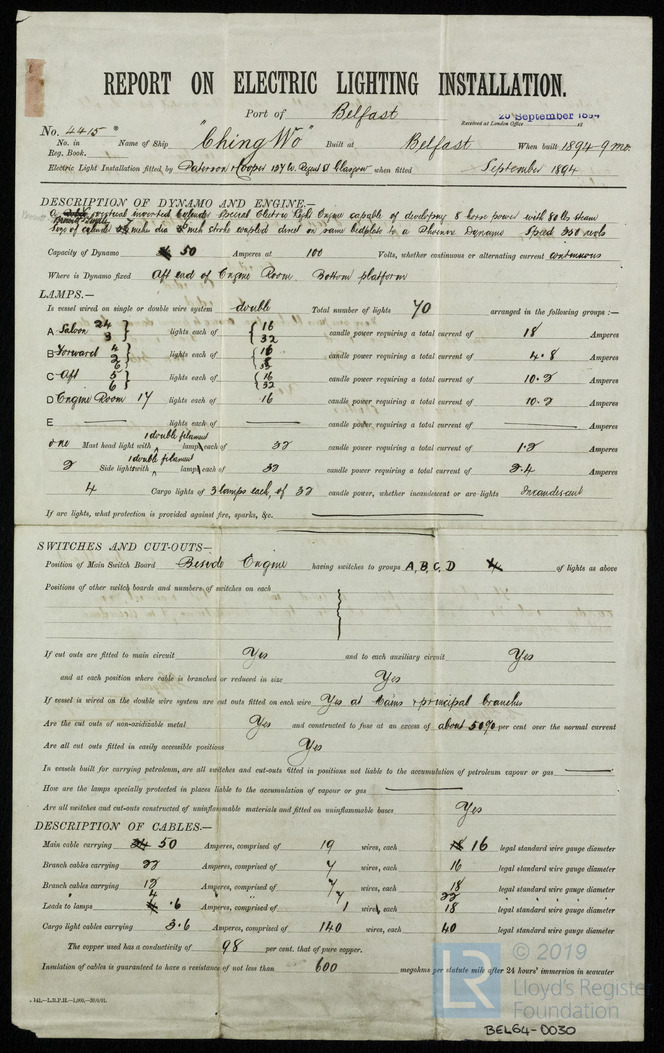 REPORT ON ELECTRIC LIGHTING INSTALLATION.
Port of Belfast
Received at London Office 18
20 September 1894
No. 4415
No. in Reg. Book. Name of Ship "Ching Wo" Built at Belfast When built 1894-9mo.
Electric Light Installation fitted by Paterson & Cooper 127 W. Regent St Glasgow when fitted September 1894
DESCRIPTION OF DYNAMO AND ENGINE.—
vertical inverted special Electric Light Engine capable of developing 8 horse power with 80 lbs steam
inches dia inch stroke coupled direct on same bedplate to a Phoenix Dynamo Speed 350 revols
Capacity of Dynamo 50 Amperes at 100 Volts, whether continuous or alternating current continuous
Where is Dynamo fixed Aft end of Engine Room. Bottom platform
LAMPS.—
Is vessel wired on single or double wire system double Total number of lights 70 arranged in the following groups :—
A Saloon 24 3 lights each of 16 32 candle power requiring a total current of 18 Amperes
B Forward 4 2 6 lights each of 16 8 32 candle power requiring a total current of 4.8 Amperes
C Aft 5 6 lights each of 16 32 candle power requiring a total current of 10.2 Amperes
D Engine Room 17 lights each of 16 candle power requiring a total current of 10.2 Amperes
E lights each of candle power requiring a total current of Amperes
one Mast head light with 1 double filament lamp each of 32 candle power requiring a total current of 1.2 Amperes
2 Side lights with 1 double filament lamp each of 32 candle power requiring a total current of 2.4 Amperes
4 Cargo lights of 3 lamps each, of 32 candle power, whether incandescent or arc lights Incandescent
If arc lights, what protection is provided against fire, sparks, &c.
SWITCHES AND CUT-OUTS—
Position of Main Switch Board Beside Engine having switches to groups A, B, C, D of lights as above
Positions of other switch boards and numbers of switches on each
If cut outs are fitted to main circuit Yes and to each auxiliary circuit Yes
and at each position where cable is branched or reduced in size Yes
If vessel is wired on the double wire system are cut outs fitted on each wire Yes at Mains & principal branches
Are the cut outs of non-oxidizable metal Yes and constructed to fuse at an excess of about 50% per cent over the normal current
Are all cut outs fitted in easily accessible positions Yes
In vessels built for carrying petroleum, are all switches and cut-outs fitted in positions not liable to the accumulation of petroleum vapour or gas
How are the lamps specially protected in places liable to the accumulation of vapour or gas
Are all switches and cut-outs constructed of uninflammable materials and fitted on uninflammable bases Yes
DESCRIPTION OF CABLES.—
Main cable carrying 50 Amperes, comprised of 19 wires, each 16 legal standard wire gauge diameter
Branch cables carrying 22 Amperes, comprised of 7 wires, each 16 legal standard wire gauge diameter
Branch cables carrying 12 Amperes, comprised of 7 wires, each 18 legal standard wire gauge diameter
" 4 " " 7 22
Leads to lamps .6 Amperes, comprised of 1 wire, each 18 legal standard wire gauge diameter
Cargo light cables carrying 3.6 Amperes, comprised of 140 wires, each 40 legal standard wire gauge diameter
The copper used has a conductivity of 98 per cent. that of pure copper.
Insulation of cables is guaranteed to have a resistance of not less than 600 megohms per statute mile after 24 hours' immersion in seawater
© 2019
LR
Lloyd's Register
Foundation
BEL64-0030